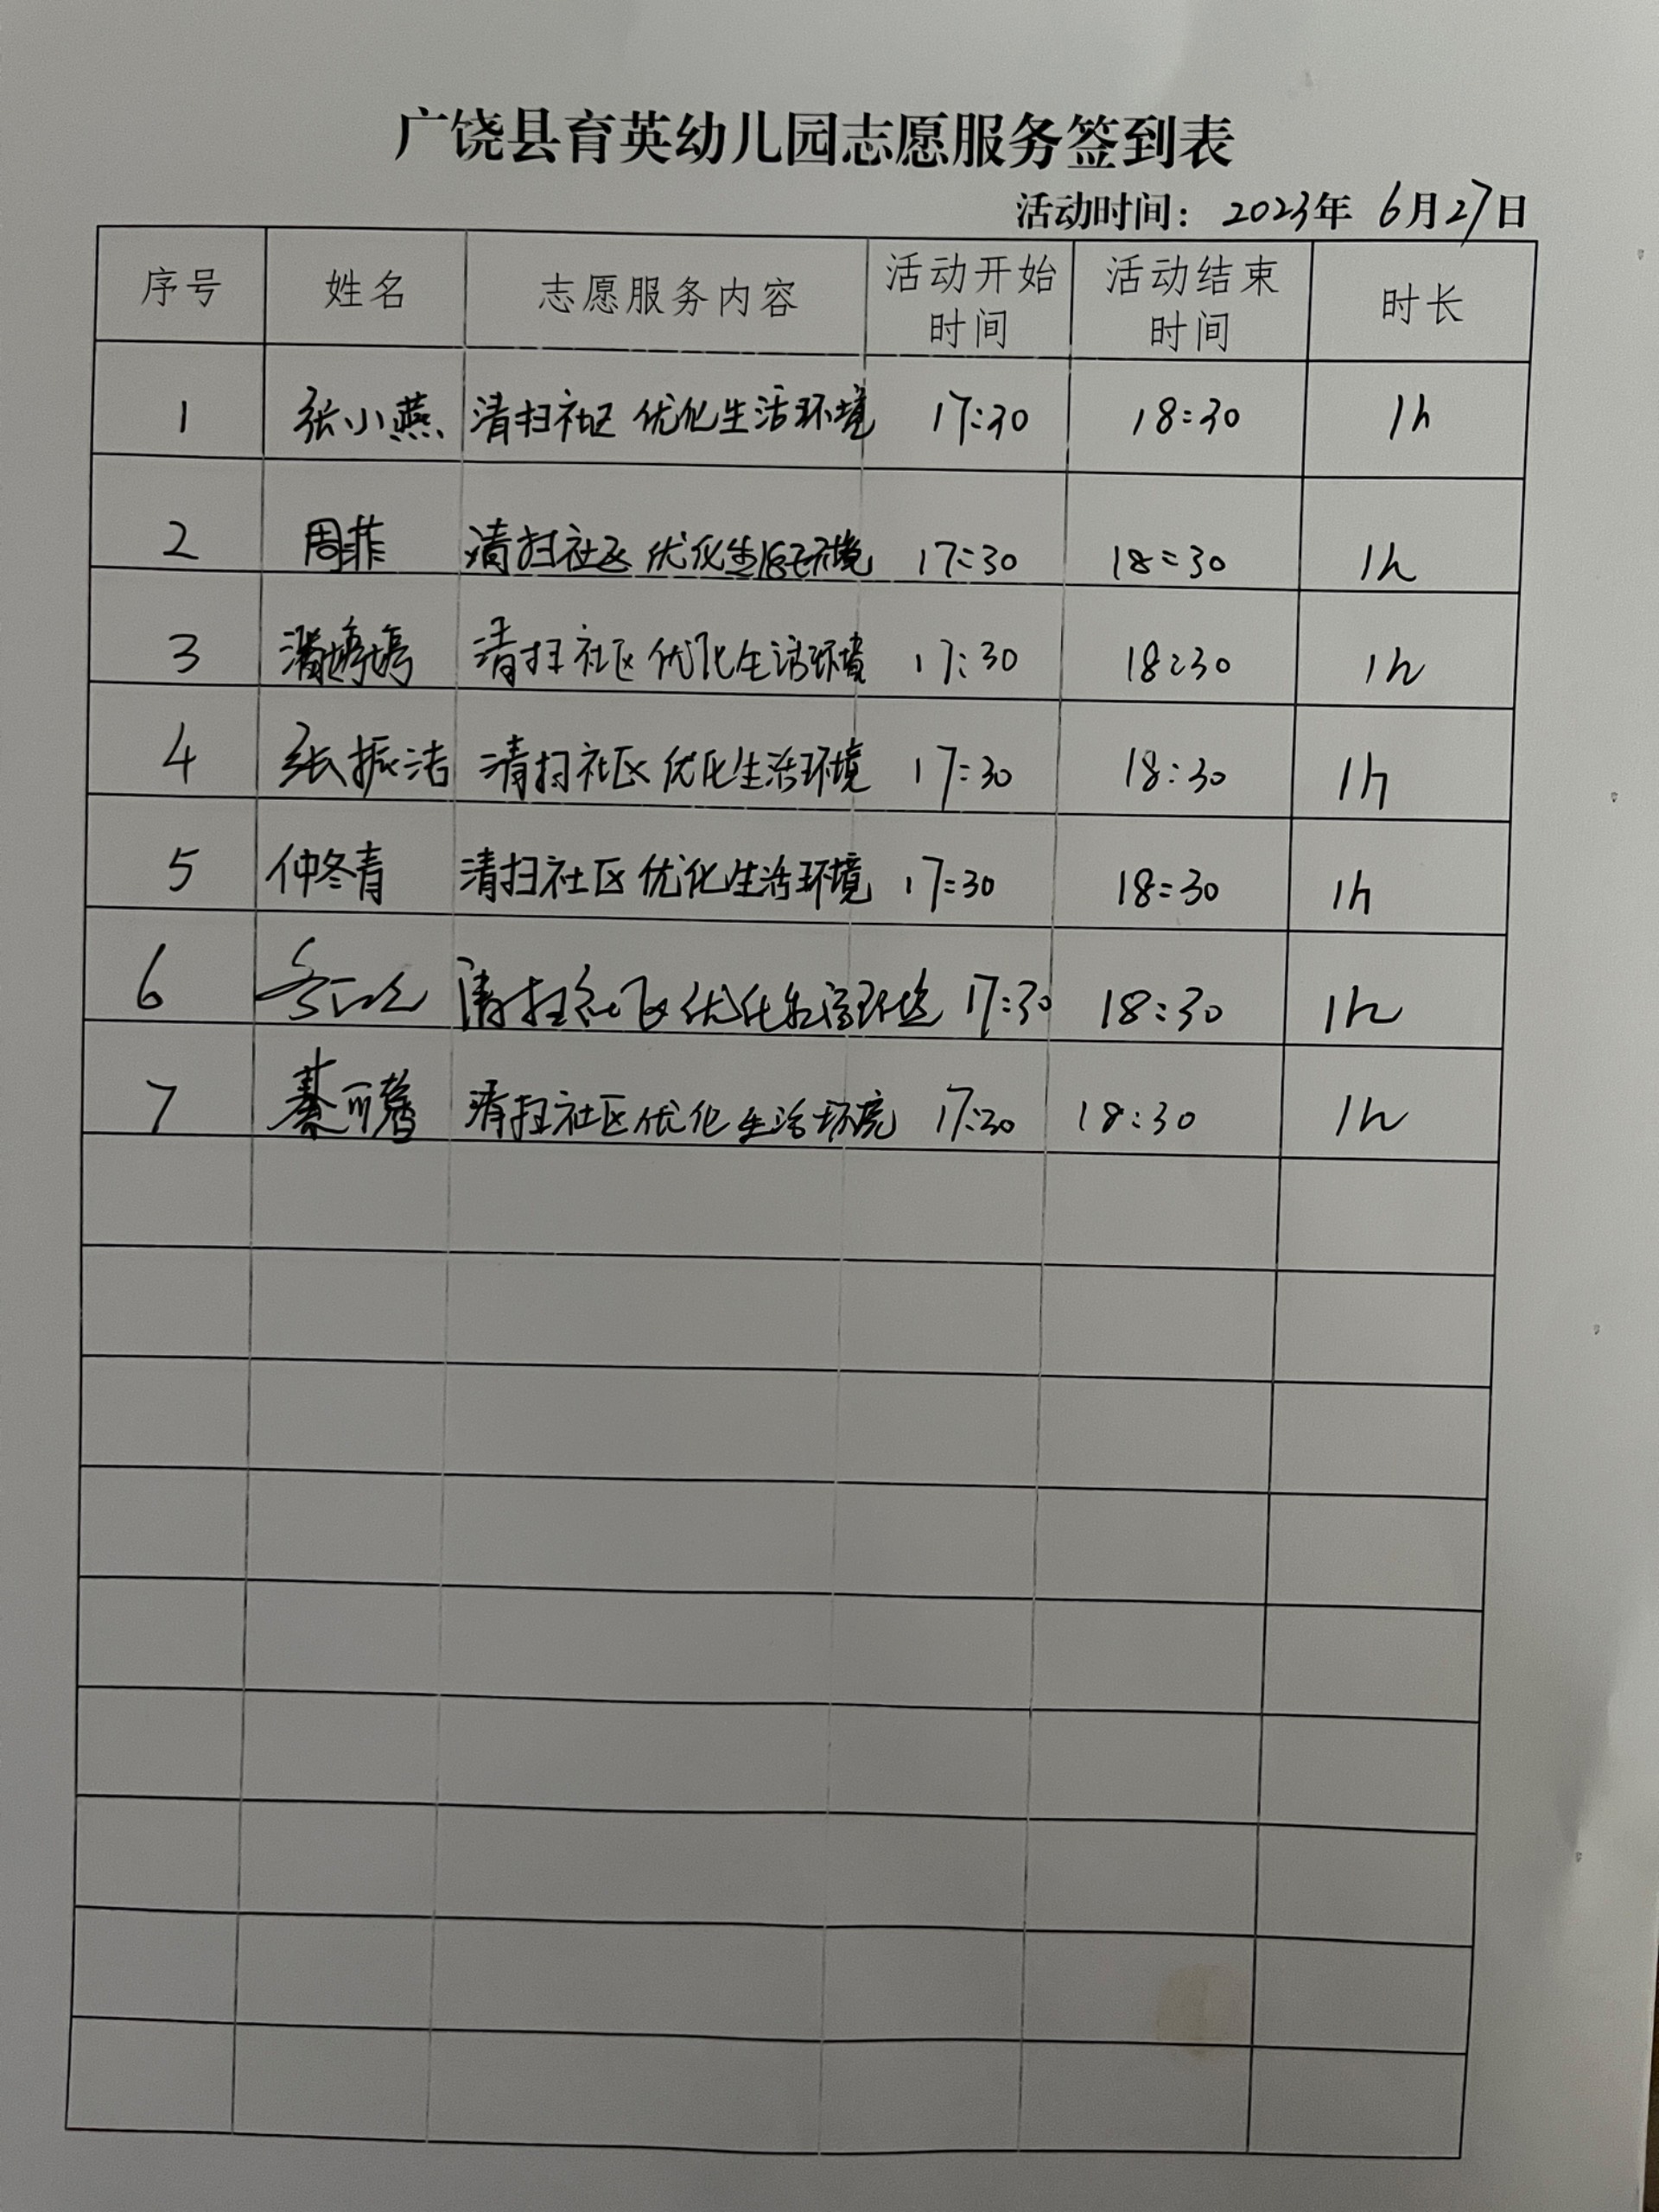 广饶县育英幼儿园志愿服务签到表
活动时间：2023年 6月27日
序号 姓名 志愿服务内容 活动开始时间 活动结束时间 时长
1 张小燕 清扫社区 优化生活环境 17:30 18:30 1h
2 周菲 清扫社区 优化生活环境 17:30 18:30 1h
3 潘婷婷 清扫社区 优化生活环境 17:30 18:30 1h
4 张振洁 清扫社区 优化生活环境 17:30 18:30 1h
5 仲冬青 清扫社区 优化生活环境 17:30 18:30 1h
6 清扫社区 优化生活环境 17:30 18:30 1h
7 清扫社区 优化生活环境 17:30 18:30 1h